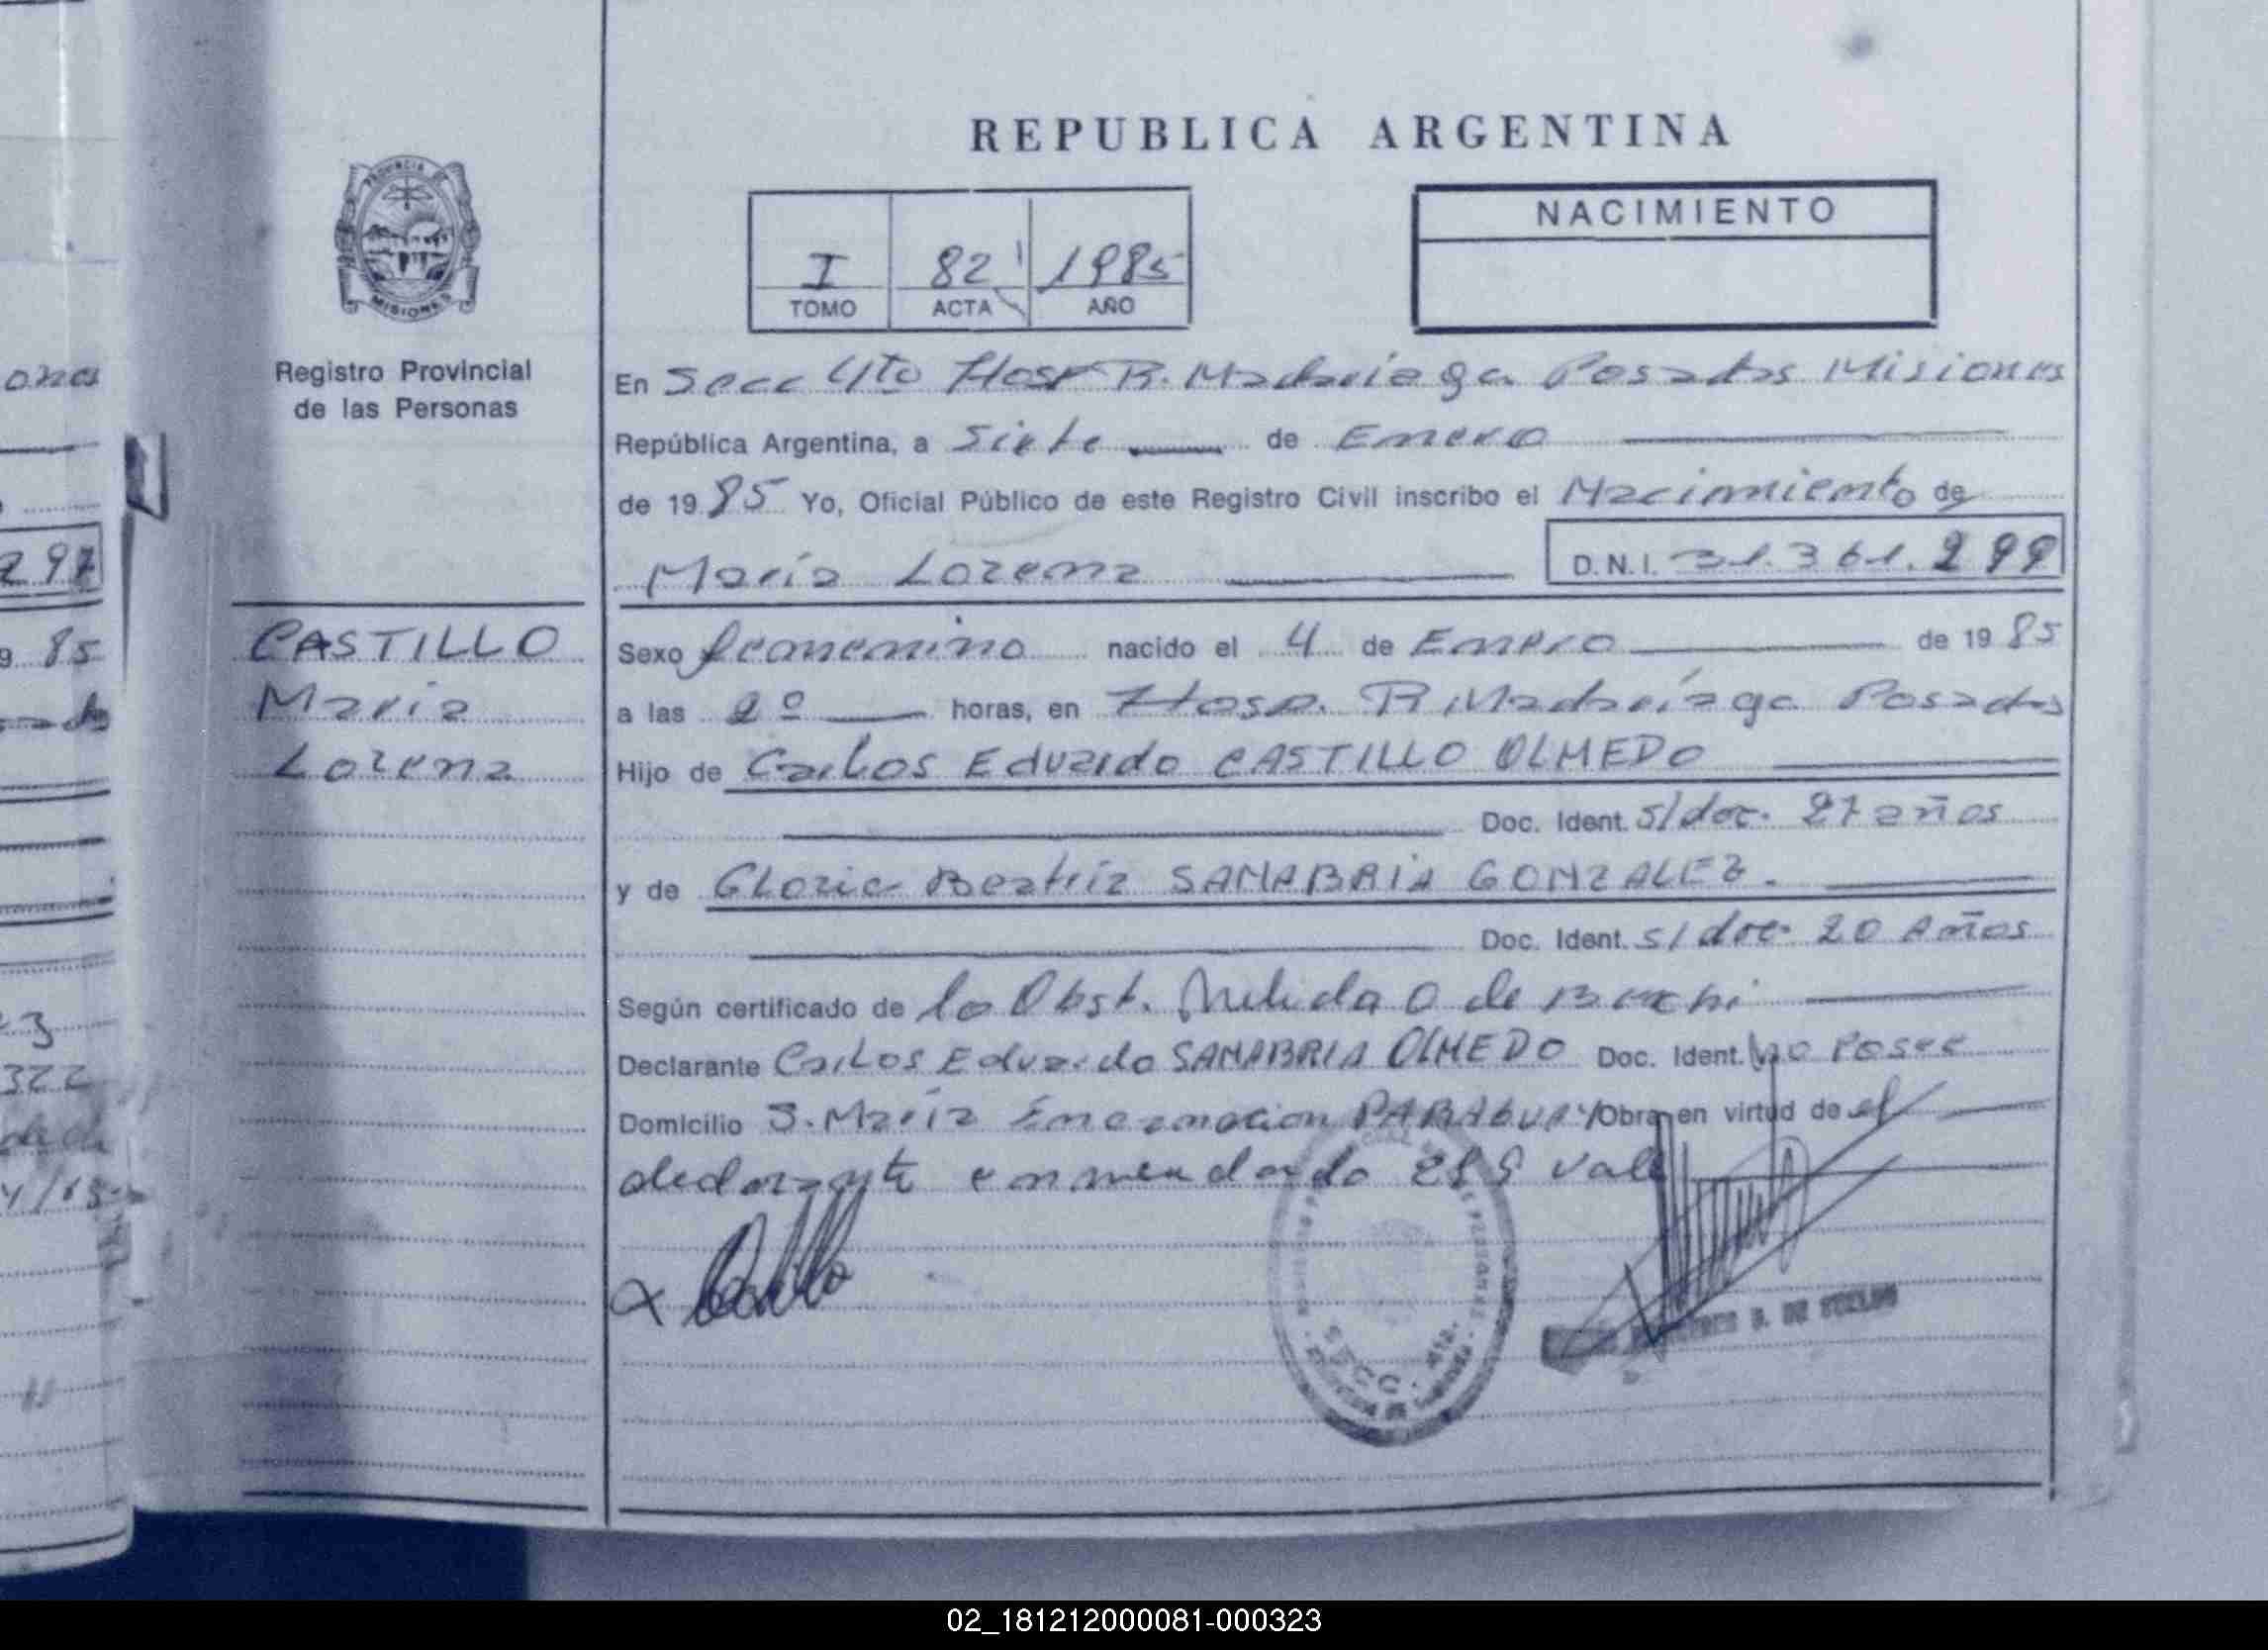 REPUBLICA ARGENTINA
PROVINCIA DE
MISIONES
Registro Provincial
de las Personas
I 82 1985
TOMO ACTA AÑO
NACIMIENTO
En Secc 4to Hosp R. Madariaga Posadas Misiones
República Argentina, a Siete de Enero
de 1985 Yo, Oficial Público de este Registro Civil inscribo el Nacimiento de
María Lorena D.N.I. 31.361.299
CASTILLO
María
Lorena
Sexo femenino nacido el 4 de Enero de 1985
a las horas, en Hosp. R Madariaga Posadas
Hijo de Carlos Eduardo CASTILLO OLMEDO
Doc. Ident. s/doc. 27 años
y de Gloria Beatriz SANABRIA GONZALEZ.
Doc. Ident. s/doc. 20 Años
Según certificado de la Obst. O de
Declarante Carlos Eduardo SANABRIA OLMEDO Doc. Ident. No Posee
Domicilio S. María Encarnacion PARAGUAY Obra en virtud de el
declarante enmendado Vale
SECC. 4ta.
297
85
3
322
02_181212000081-000323